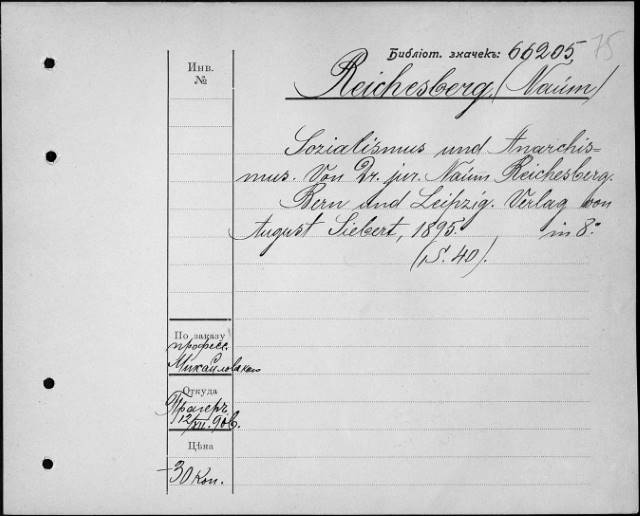 Библіот. значекъ: 66205. 75
Инв.
№
Reichesberg, (Naúm)
Sozialismus und Anarchis=
mus. Von Dr. jur. Naúm Reichesberg.
Bern und Leipzig. Verlag von
August Siebert, 1895. in 8°.
(S. 40).
По заказу
професс.
Михайловскаго
Откуда
Прагеръ
12/XII. 906.
Цѣна
30 коп.